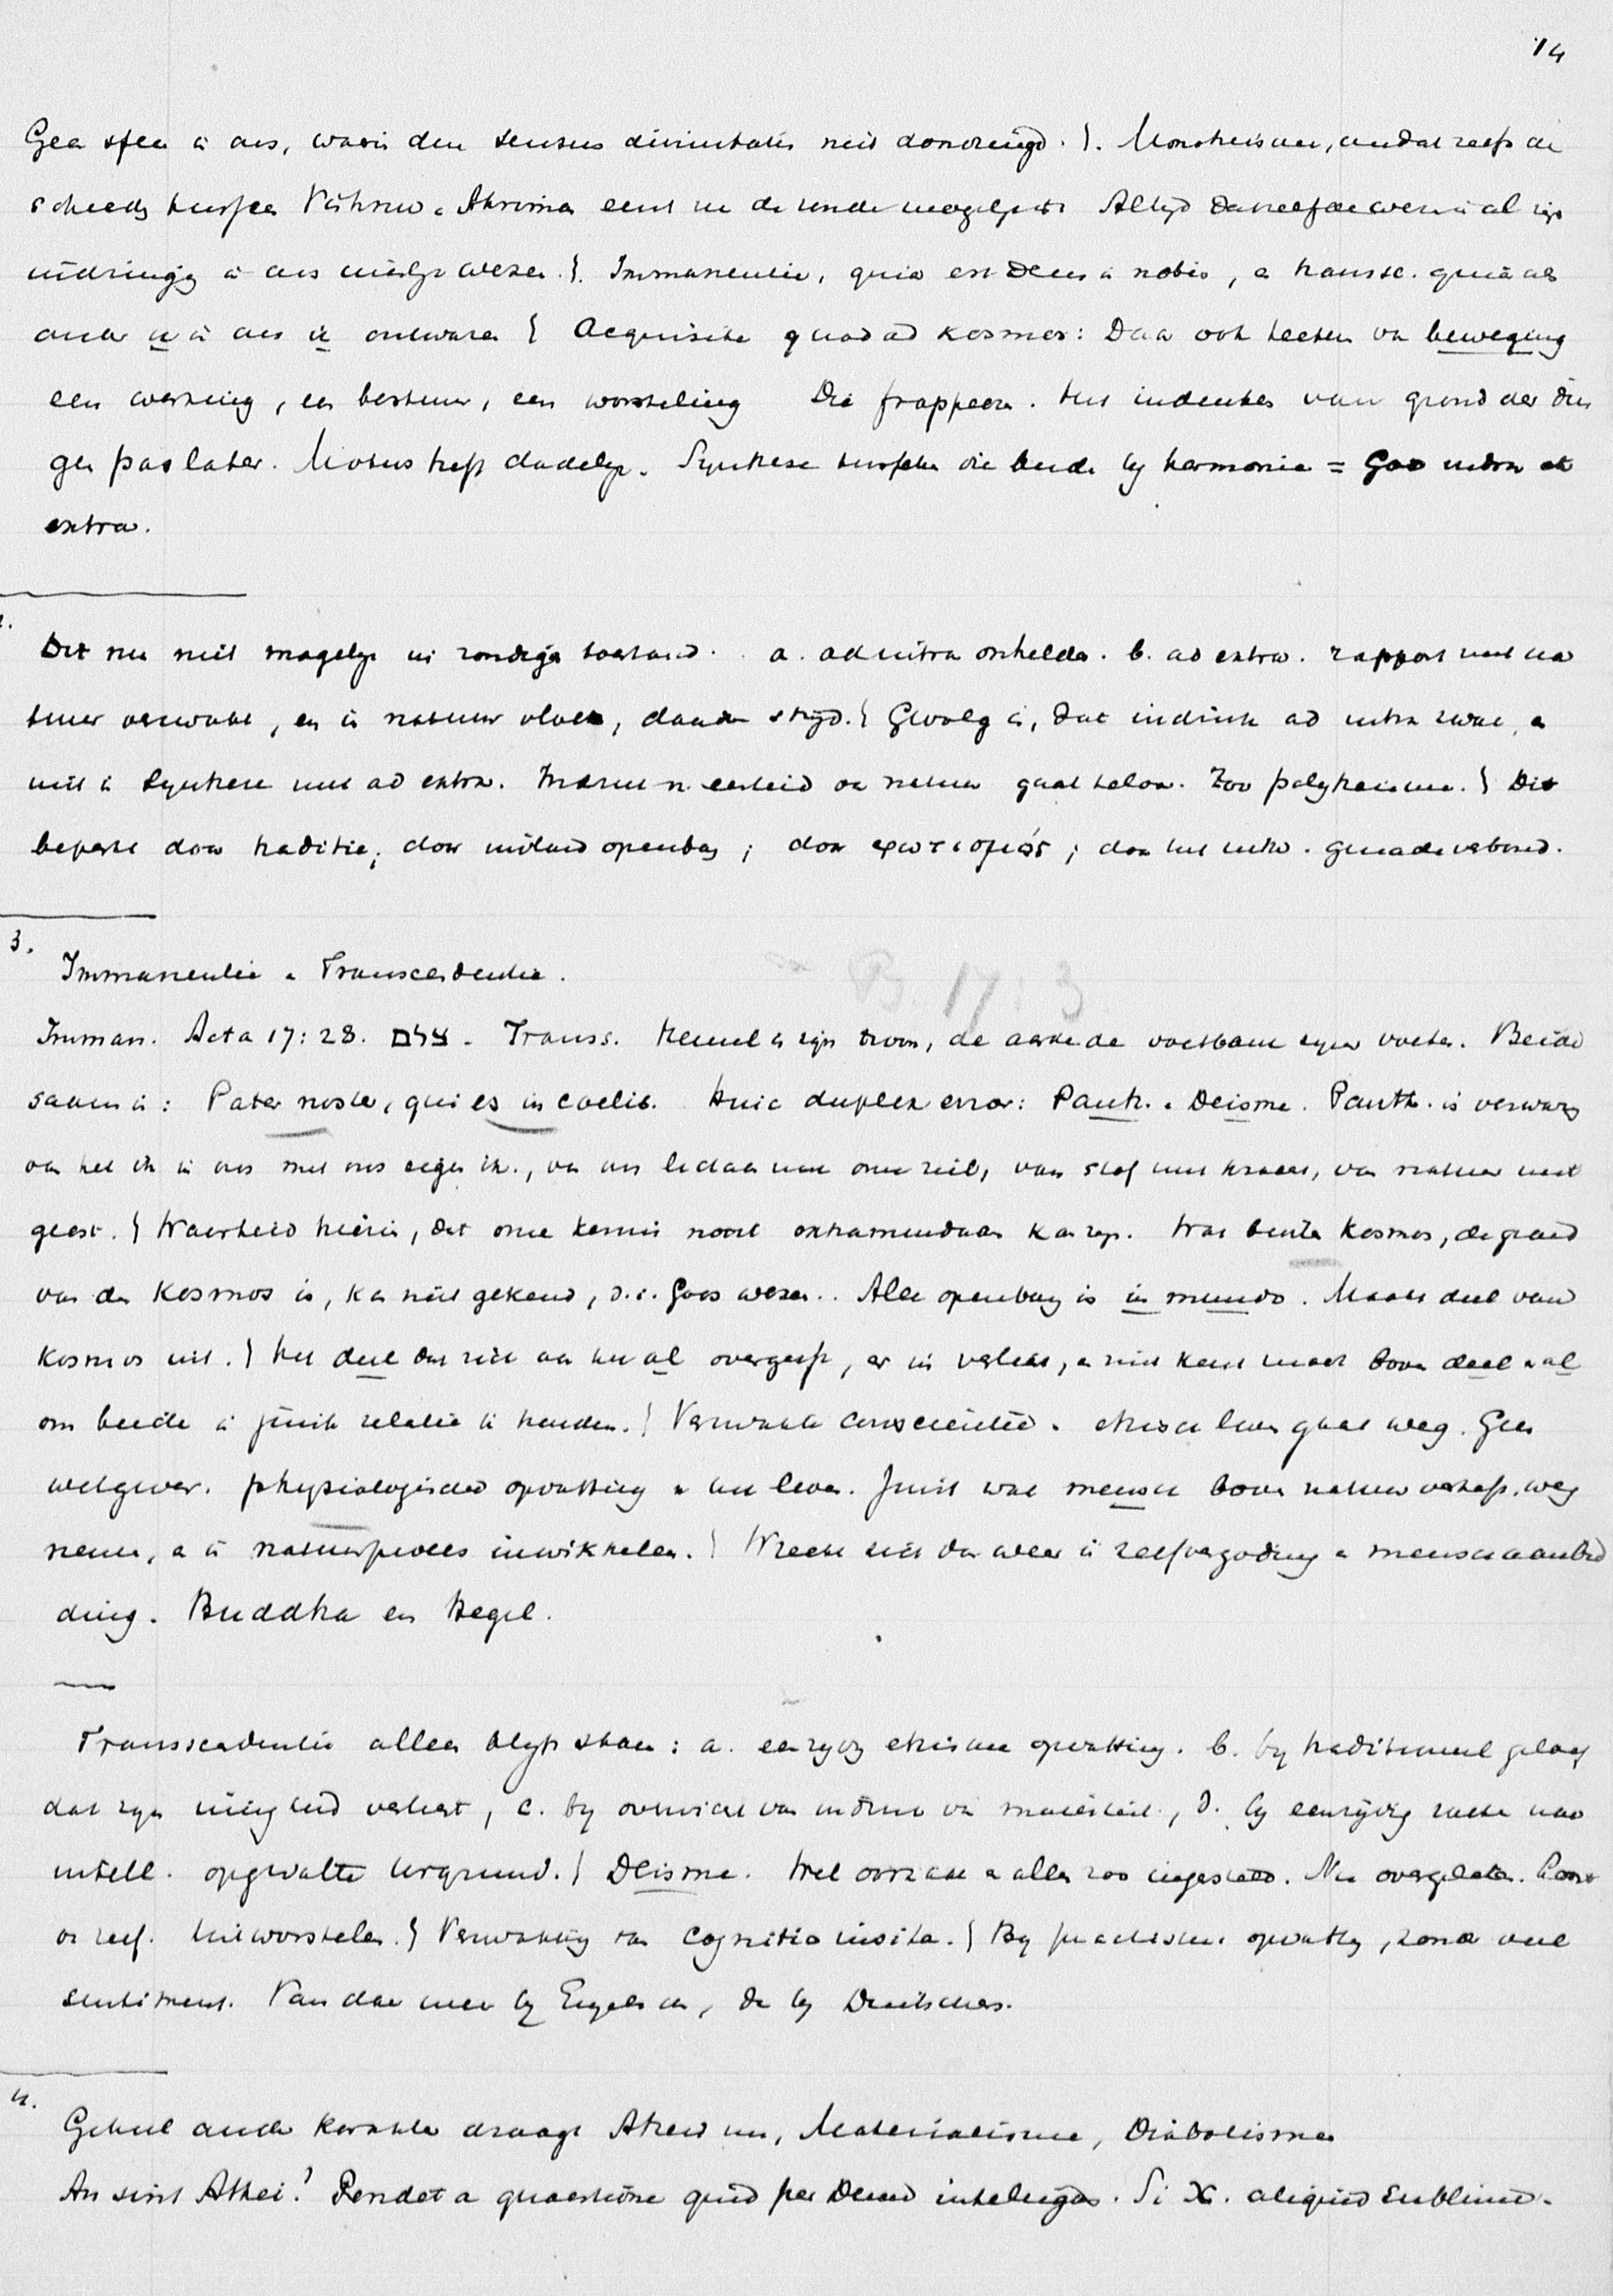 14
Geen sfeer in ons, waarin den sensus divinitatis niet doordringd. }. Monotheisme, omdat zelfs de
scheeds tusschen Vishnu en Ahriman eerst in de zonde mogelyk is Altyd hetzelfde wezen in al zijn
indringing in ons innerlijk wezen. }. Immanentie, quia est Deus in nobis, en transc. quia als
ander ik in ons ik ontwaren } Acquisita quoad kosmos: Daar ook teeken van beweging
een werking, een bestuur, een worsteling Die frappeeren. Het indenken van grond der din
gen pas later. Motus treft dadelyk. Synthese tusschen die beide by harmonie = God intra et
extra.
2.
Dit nu niet mogelyk in zondigen toestand. a. ad intra onhelder. b. ad extra. rapport met na
tuur verzwakt, en in natuur vloek, daardoor strijd. } Gevolg is, dat indruk ad intra zwak, en
niet in synthese met ad extra. Indruk n. eenheid van natuur gaat teloor. Zoo polytheisme. } Dit
beperkt door traditie; door inblaud openbg; door φωτισμός; door het intr. genadeverbond.
3.
Immanentie en Transcendentie.
B. 17 : 3
Imman. Acta 17:28. צלם. Transs. Hemel is zijn troon, de aarde de voetbank zyner voeten. Beide
saam in: Pater noster, qui es in coelis. Huic duplex error: Panth. en Deisme. Panth. is verwarg
van het ik in ons met ons eigen ik., van ons lichaam met onze ziel, van stof met kracht, van natuur met
geest. } Waarheid hierin, dat onze kennis nooit extramundaan kan zyn. Wat buiten kosmos, de grond
van den kosmos is, kan niet gekend, d.i. Gods wezen.. Alle openbarg is in mundo. Maakt deel van
kosmos uit. } Het deel dat zich aan het al overgeeft, er in verliest, en niet kent macht boven deel en al
om beide in juiste relatie te houden. } Verzwakte conscientie. ethische leven gaat weg. Geen
wetgever. physiologische opvatting van het leven. Juist wat mensch boven natuur verheft, weg
nemen, en in natuurproces inwikkelen. } Wreekt zich dan weer in zelfvergoding en menschaanbid
ding. Buddha en Hegel.
Transcendentie alleen blyft staan: a. eenzydig ethische opvatting. b. by traditioneel geloof
dat zyn innigheid verliest, c. by overwicht van indruk van majesteit, d. by eenzijdig zoeken naar
intell. opgevatte Urgrund. } Deisme. Wel oorzaak en alles zoo ingesteld. Nu overgelaten. Komt
er zelf. uitworstelen. } Verzwakking van cognitio insita. } By practische opvattg, zonder veel
sentiment. Van daar meer by Engelschen, dan by Duitschers.
4.
Geheel ander karakter draagt Atheisme, Materialisme, Diabolisme
An sint Athei? Pendet a quaestione quid per Deum intelligas. Si X. aliquid sublime.